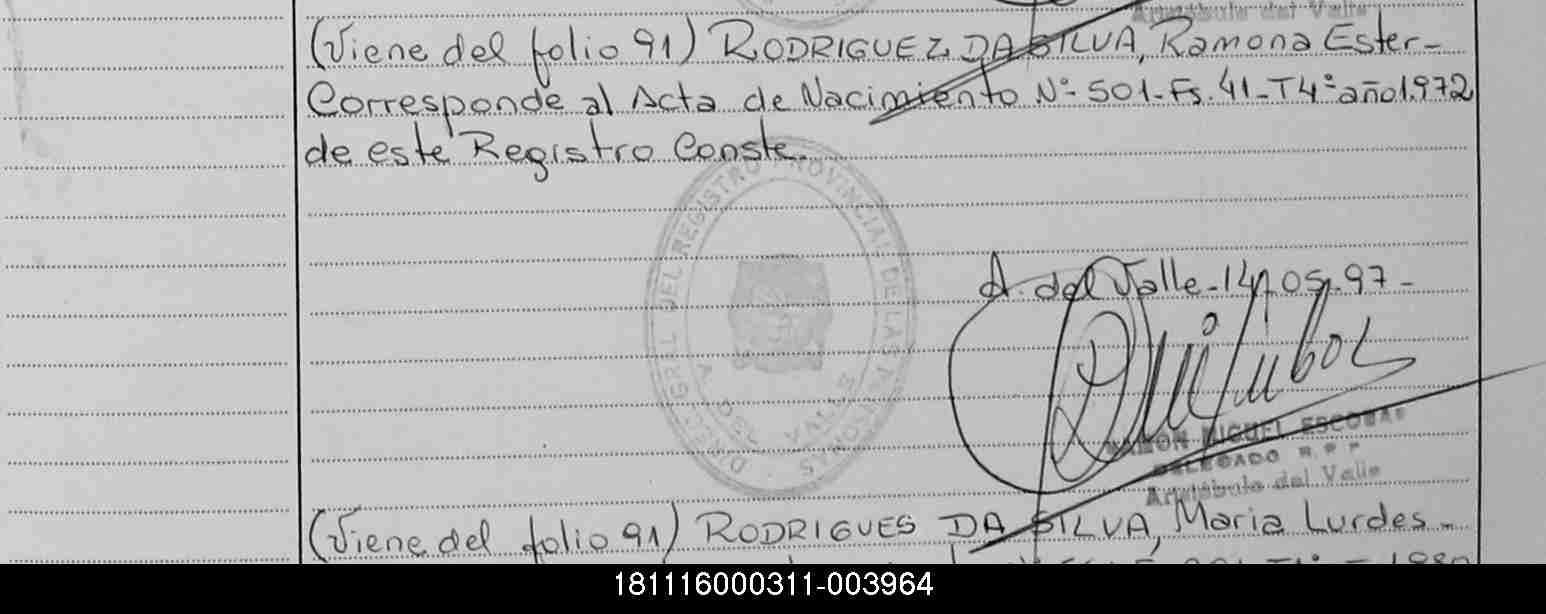 Aristóbulo del Valle
(Viene del folio 91) RODRIGUEZ DA SILVA, Ramona Ester-
Corresponde al Acta de Nacimiento Nº- 501-Fs.41-T4º año1.972
de este Registro Conste.
DIREC. GRAL DEL REGISTRO PROVINCIAL DE LAS PERSONAS
A. del Valle-14-05-97-
RAMON MIGUEL ESCOBAR
DELEGADO R. P. P.
Aristóbulo del Valle
(Viene del folio 91) RODRIGUES DA SILVA, Maria Lurdes-
181116000311-003964